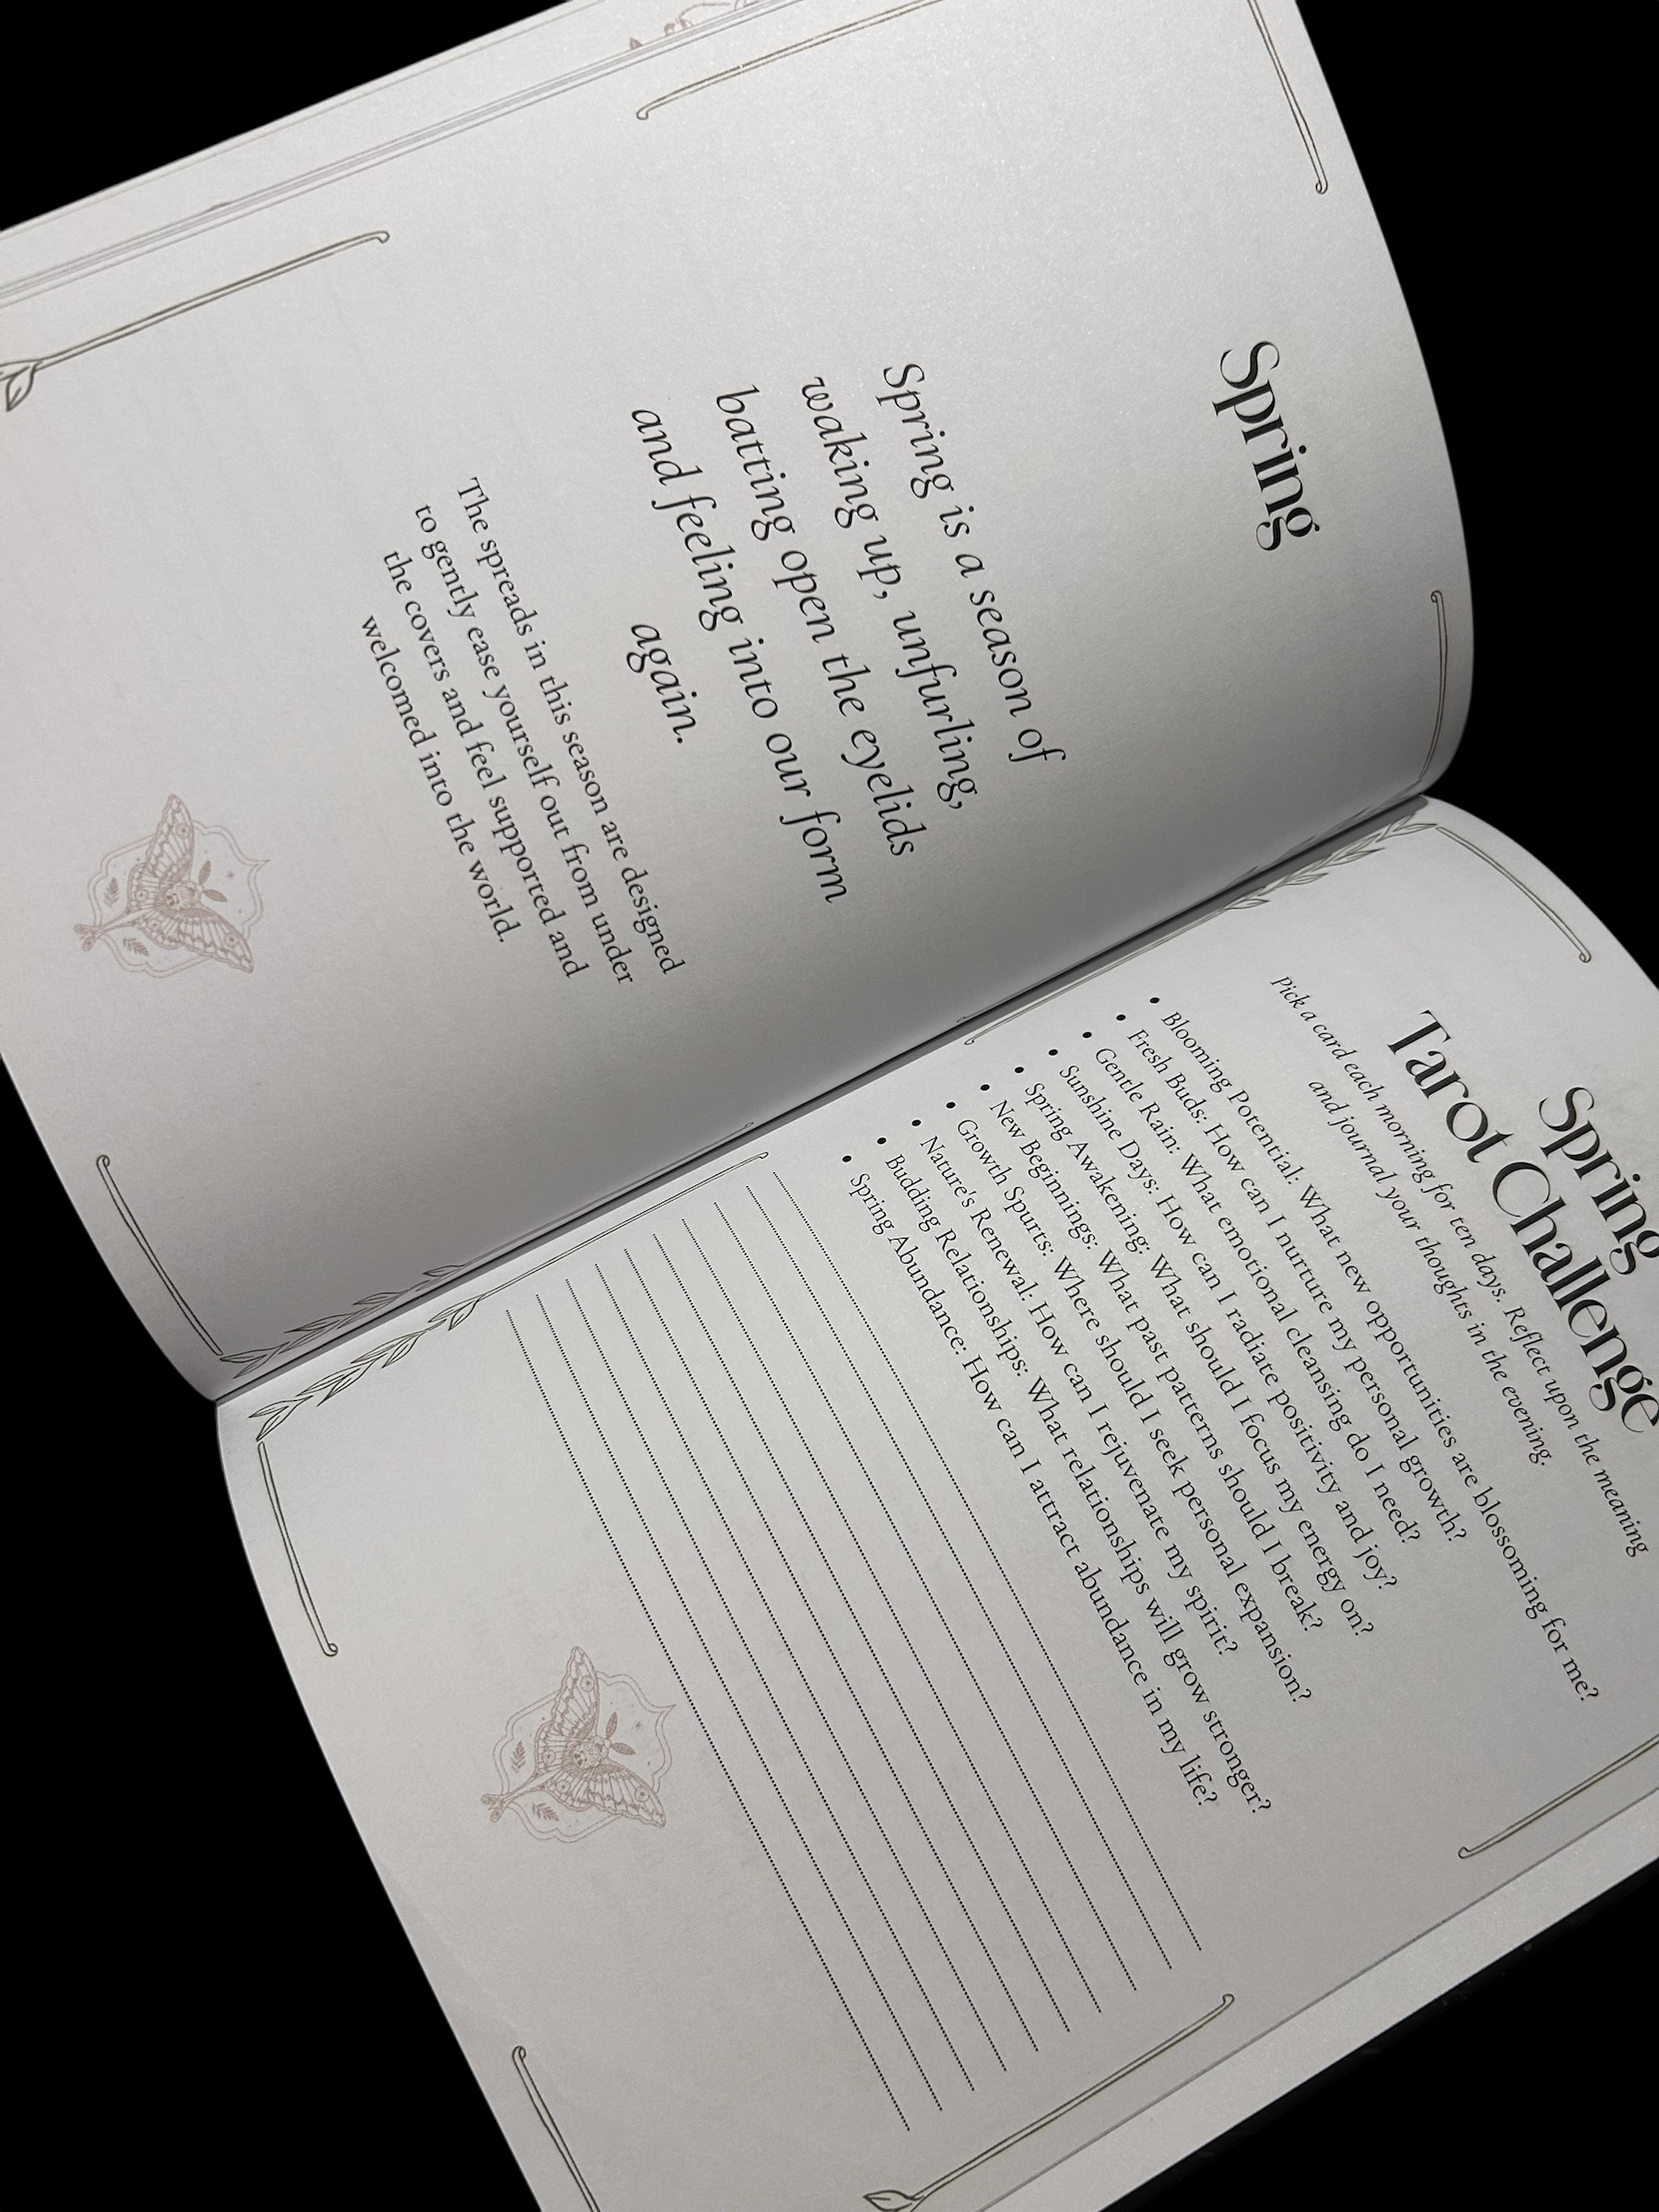 Spring
Spring is a season of
waking up, unfurling,
batting open the eyelids
and feeling into our form
again.
The spreads in this season are designed
to gently ease yourself out from under
the covers and feel supported and
welcomed into the world.
Spring
Tarot Challenge
Pick a card each morning for ten days. Reflect upon the meaning
and journal your thoughts in the evening.
• Blooming Potential: What new opportunities are blossoming for me?
• Fresh Buds: How can I nurture my personal growth?
• Gentle Rain: What emotional cleansing do I need?
• Sunshine Days: How can I radiate positivity and joy?
• Spring Awakening: What should I focus my energy on?
• New Beginnings: What past patterns should I break?
• Growth Spurts: Where should I seek personal expansion?
• Nature's Renewal: How can I rejuvenate my spirit?
• Budding Relationships: What relationships will grow stronger?
• Spring Abundance: How can I attract abundance in my life?